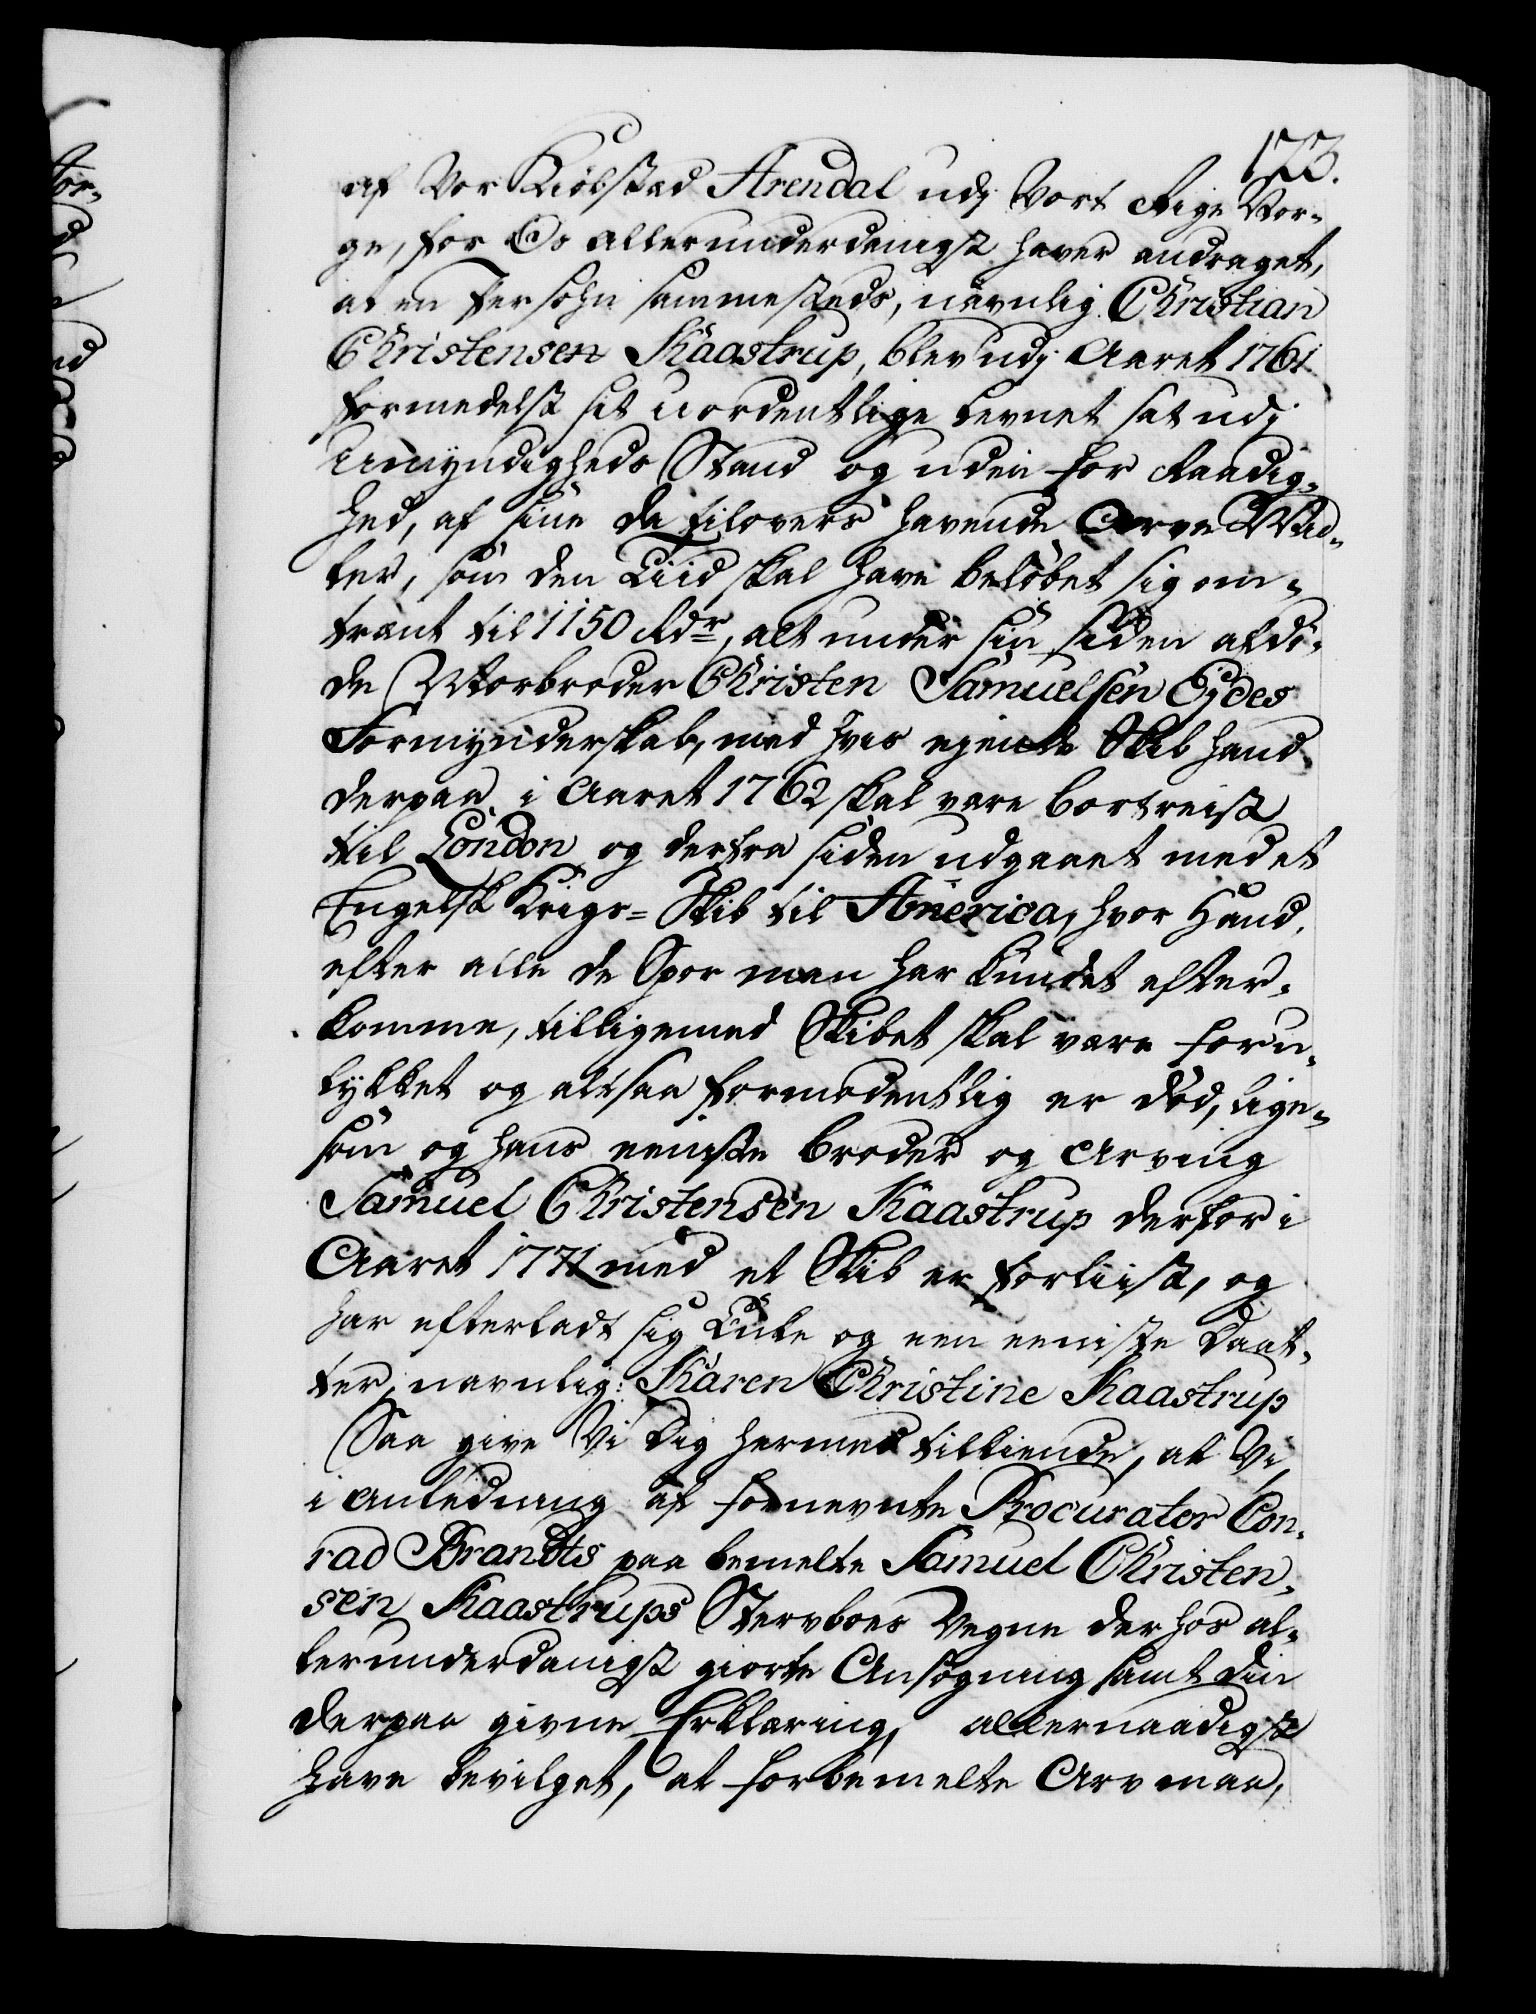 123.
af Vor Kiöbstæd Arendal udj Vort Rige Nor-
ge, for Os allerunderdanigst haver andraget,
at en Persohn sammesteds, nævnlig Christian
Christensen Kaastrup, blev udj Aaret 1761
formedelst sit uordentlige Levnet sat udj
Umyndigheds Stand og uden for Raadig-
hed, af sine da tilovers havende Arve Mid-
ler, som den Tiid skal have beløbet sig om-
trent til 1150 Rdr, alt under sin siden afdö-
de Morbroder Christen Samuelsen Eydes
Formynderskab, med hvis ejende Skib hand
derpaa i Aaret 1762 skal være bortreist
til London og derfra siden udgaaet med et
Engelsk Krigs-Skib til America, hvor Hand,
efter alle de Spor man har kundet efter-
komme, tilligemed Skibet skal være foru-
lykket og altsaa formodentlig er död, lige-
som og hans eeniste Broder og Arving
Samuel Christensen Kaastrup derfor i
Aaret 1771 med et Skib er forliist, og
har efterladt sig Enke og een eeniste Daat-
ter, navnlig: Karen Christine Kaastrup
Saa give Vi Dig hermed tilkiende, at Vi,
i Anledning af fornevnte Procurator Con-
rad Brandts paa bemelte Samuel Christen-
sen Kaastrups Stervboes Vegne derhos al-
lerunderdanigst giorte Ansögning samt din
derpaa givne Erklæring, allernaadigst
have bevilget, at forbemelte Arv maa,